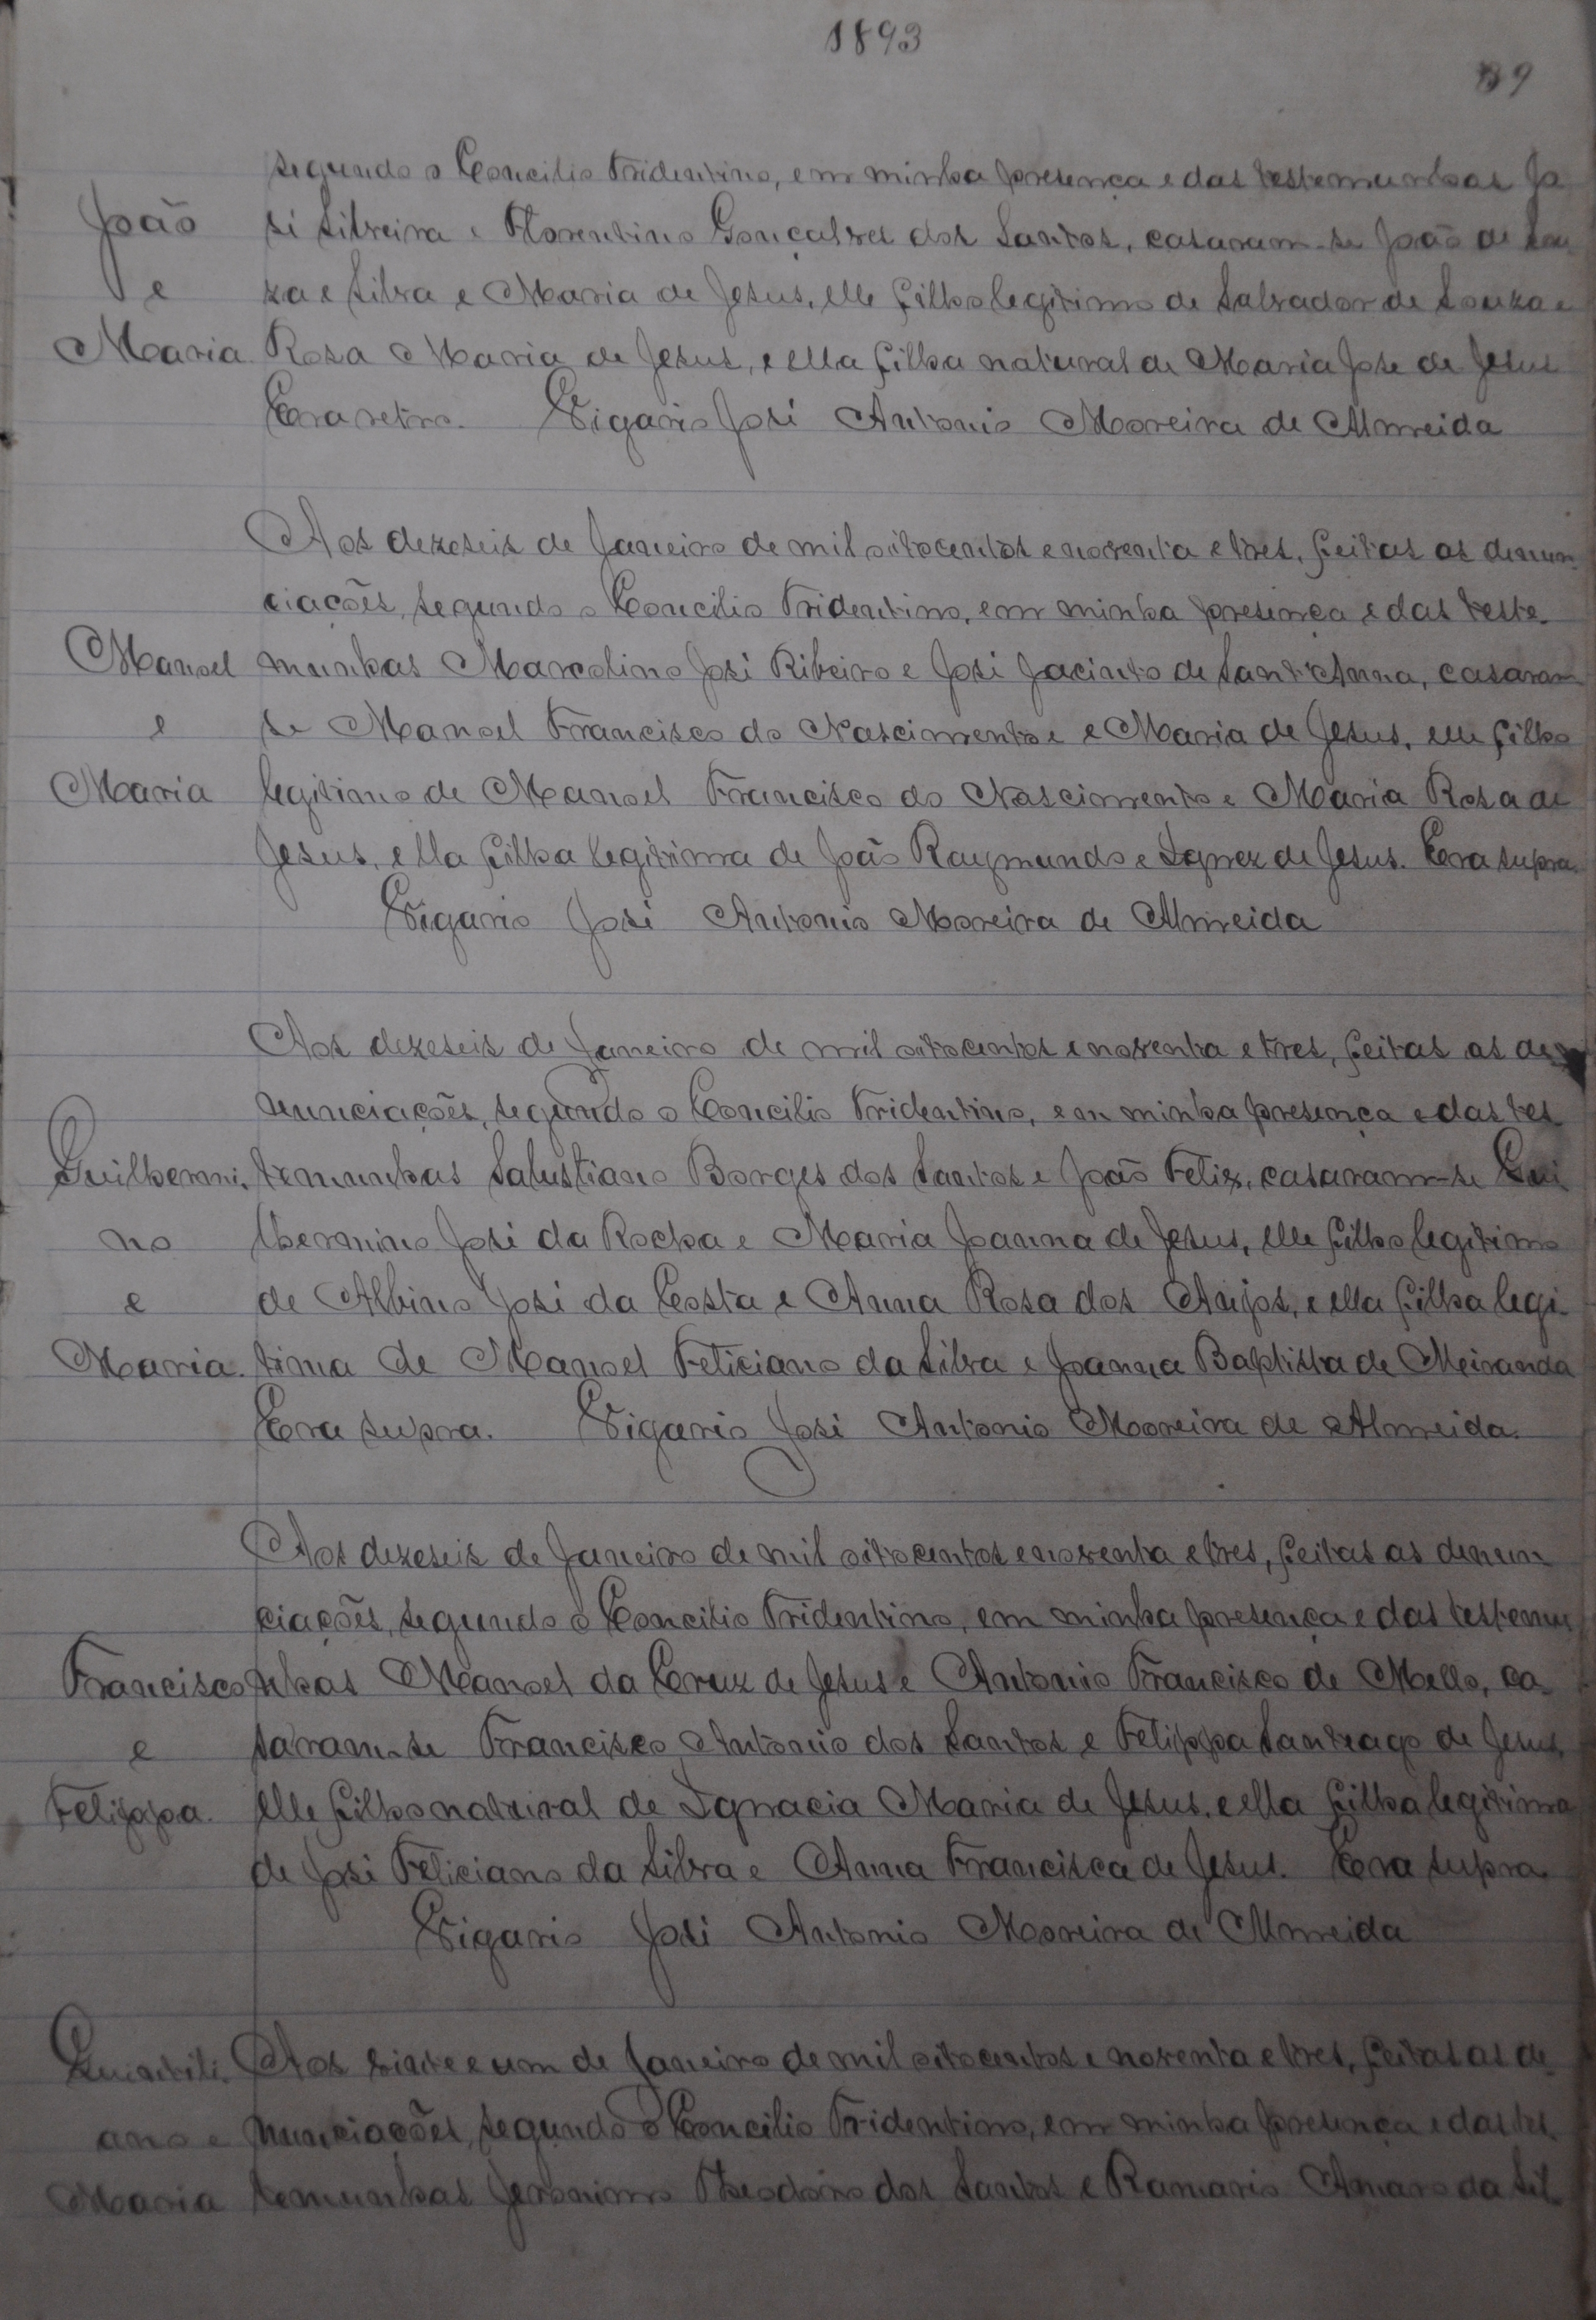 1893
89
segundo o Concilio Tridentino, em minha presença e das testemunhas Jo
João
sé Silveira e Florentino Gonçalves dos Santos, casaram-se João de Sou
e
za e Silva e Maria de Jesus, elle filho legitimo de Salvador de Souza e
Maria
Rosa Maria de Jesus, e ella filha natural de Maria José de Jesus
Era retro. Vigario José Antonio Moreira de Almeida
Aos dezeseis de Janeiro de mil oitocentos e noventa e tres, feitas as denun
ciações, segundo o Concilio Tridentino, em minha presença e das teste-
Manoel
munhas Marcolino José Ribeiro e José Jacinto de Sant'Anna, casaram
e
se Manoel Francisco do Nascimento e Maria de Jesus, elle filho
Maria
legitimo de Manoel Francisco do Nascimento e Maria Rosa de
Jesus, ella filha legitima de João Raymundo e Ignez de Jesus. Era supra.
Vigario José Antonio Moreira de Almeida
Aos dezeseis de Janeiro de mil oitocentos e noventa e tres, feitas as de
nunciações, segundo o Concilio Tridentino, em minha presença e das tes
Guilhermi-
temunhas Salustiano Borges dos Santos e João Felix, casaram-se Gui
no
lhermino José da Rocha e Maria Joanna de Jesus, elle filho legitimo
e
de Albino José da Costa e Anna Rosa dos Anjos, e ella filha legi-
Maria.
tima de Manoel Feliciano da Silva e Joanna Baptista de Meiranda
Era supra. Vigario José Antonio Moreira de Almeida.
Aos dezeseis de Janeiro de mil oitocentos e noventa e tres, feitas as denun
ciações, segundo o Concilio Tridentino, em minha presença e das testemu
Francisco
nhas Manoel da Cruz de Jesus e Antonio Francisco de Mello, ca-
e
saram-se Francisco Antonio dos Santos e Felippa Santeago de Jesus,
Felippa.
elle filho natural de Ignacia Maria de Jesus, e ella filha legitima
de José Feliciano da Silva e Anna Francisca de Jesus. Era supra.
Vigario José Antonio Moreira de Almeida
Quintili-
Aos vinte e um de Janeiro de mil oitocentos e noventa e tres, feitas as de
ano e
nunciações, segundo o Concilio Tridentino, em minha presença e das tes-
Maria
temunhas Jeronimo Theodoro dos Santos e Amaro da Sil-